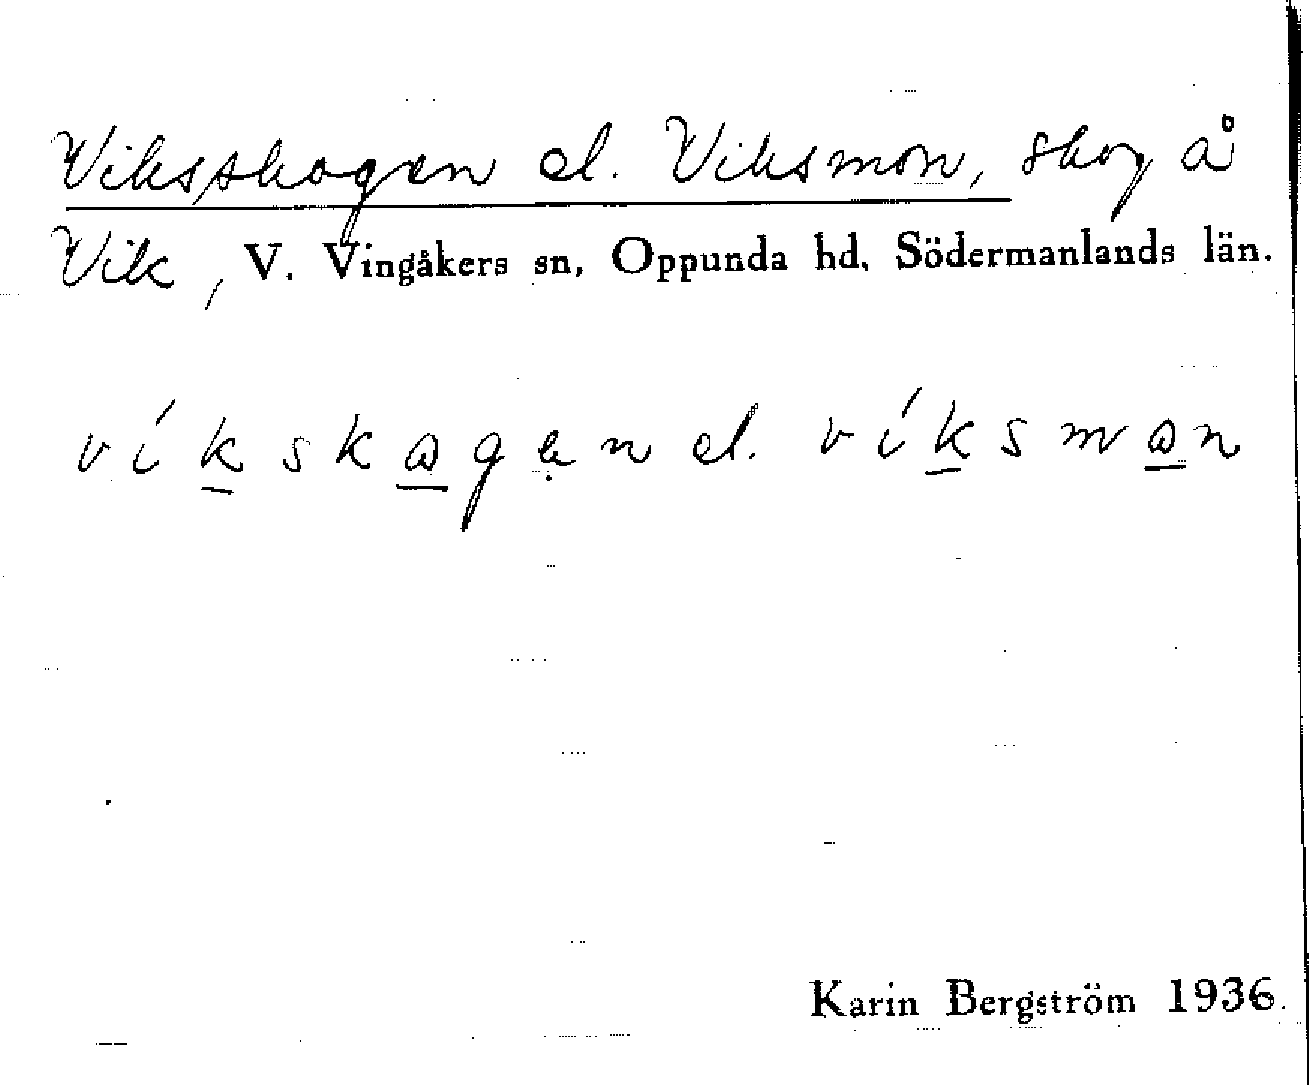 Viksskogen el. Viksmon, skog å
Vik, V. Vingåkers sn, Oppunda hd, Södermanlands län.
víkskagen el. víksman
Karin Bergström 1936.